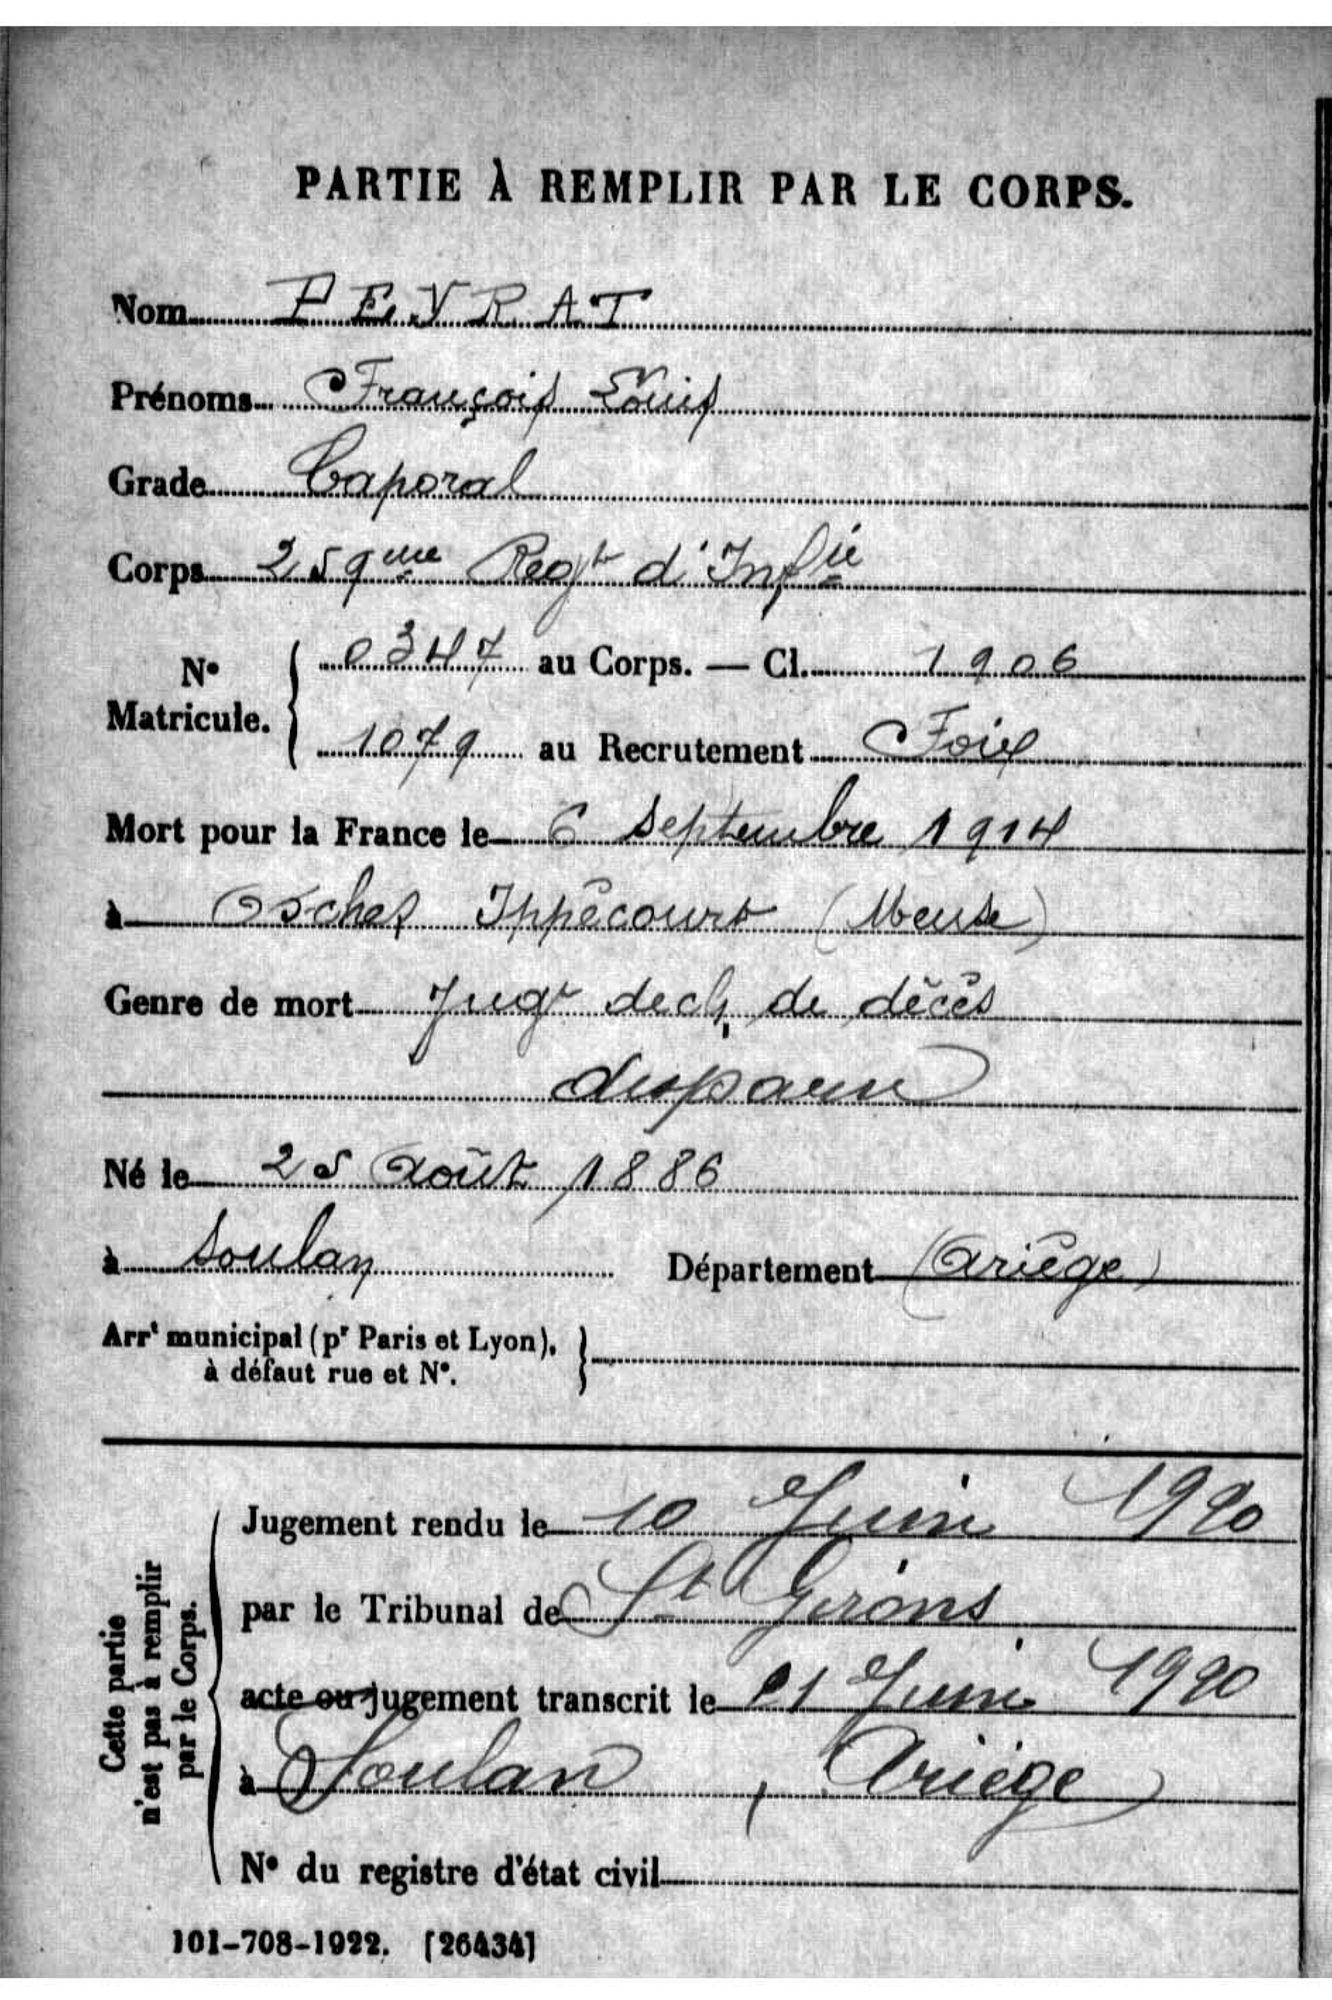 PARTIE À REMPLIR PAR LE CORPS.
Nom PEYRAT
Prénoms François Louis
Grade Caporal
Corps 259ème Regt d'Infie
N° Matricule. { 0347 au Corps. — Cl. 1906
1079 au Recrutement Foix
Mort pour la France le 6 Septembre 1914
à Osches Ippécourt (Meuse)
Genre de mort Jugt décl. de décès
disparu
Né le 25 Août 1886
à Soulan Département (Ariège)
Arrt municipal (pr Paris et Lyon), à défaut rue et N°. }
Cette partie n'est pas à remplir par le Corps.
Jugement rendu le 10 Juin 1920
par le Tribunal de St Girons
acte ou jugement transcrit le 21 Juin 1920
à Soulan, Ariège
N° du registre d'état civil
101-708-1922. [26434]